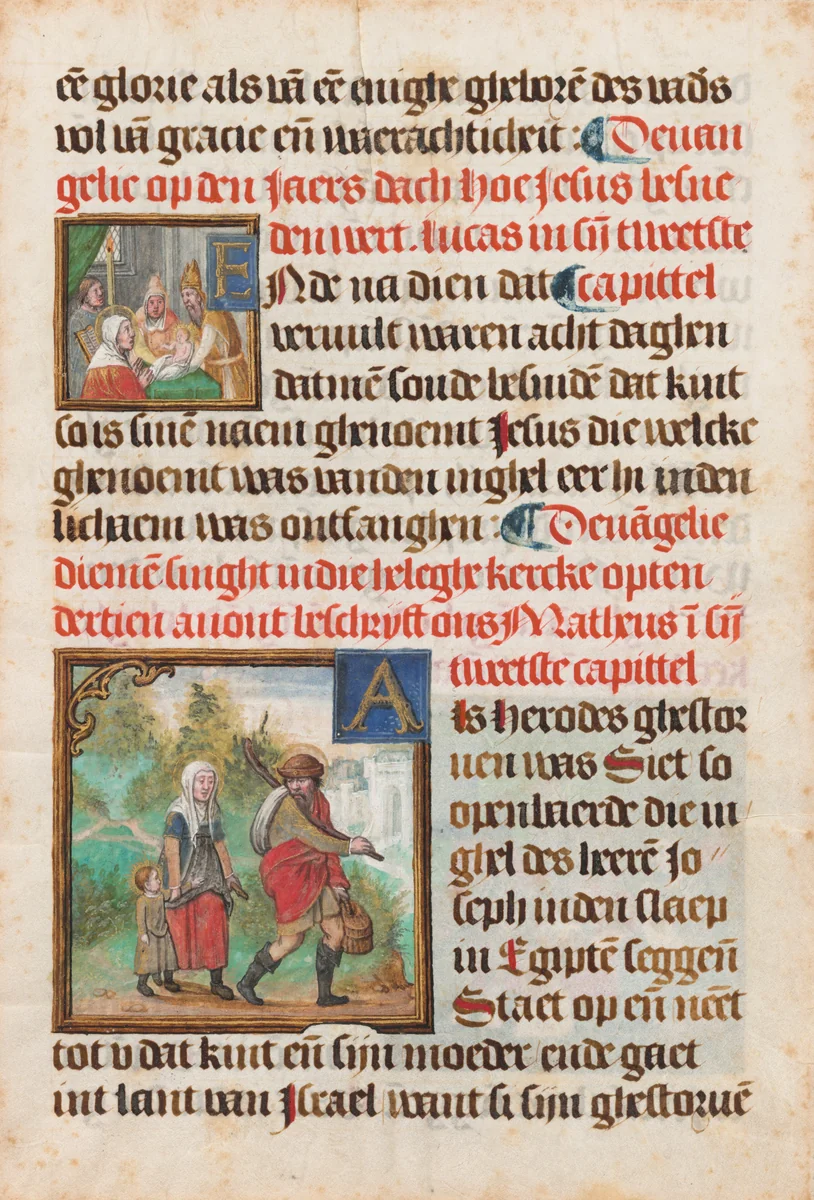 eē glorie als vā eē enighe gheborē des vad's
vol vā gracie eñ waerachticheit : Deuan
gelie op den Jaers dach Hoe Jesus besne
den wert. Lucas in sij̄ tweetste
ENde na dien dat capittel
veruult waren acht daghen
datmē soude besnidē dat kint
so is sinē naem ghenoemt Jesus die welcke
ghenoemt was vanden inghel eer hi inden
lichaem was ontfanghen : Deuāgelie
diemē singht in die heleghe kercke op ten
dertien auont beschrijft ons Matheus ī sij̄
tweetste capittel
Als Herodes ghestor
uen was Siet so
openbaerde die in
ghel des heerē Jo
seph inden slaep
in Egiptē seggeñ
Staet op eñ neēt
tot v dat kint eñ sijn moeder ende gaet
int lant van Israel want si sijn ghestoruē